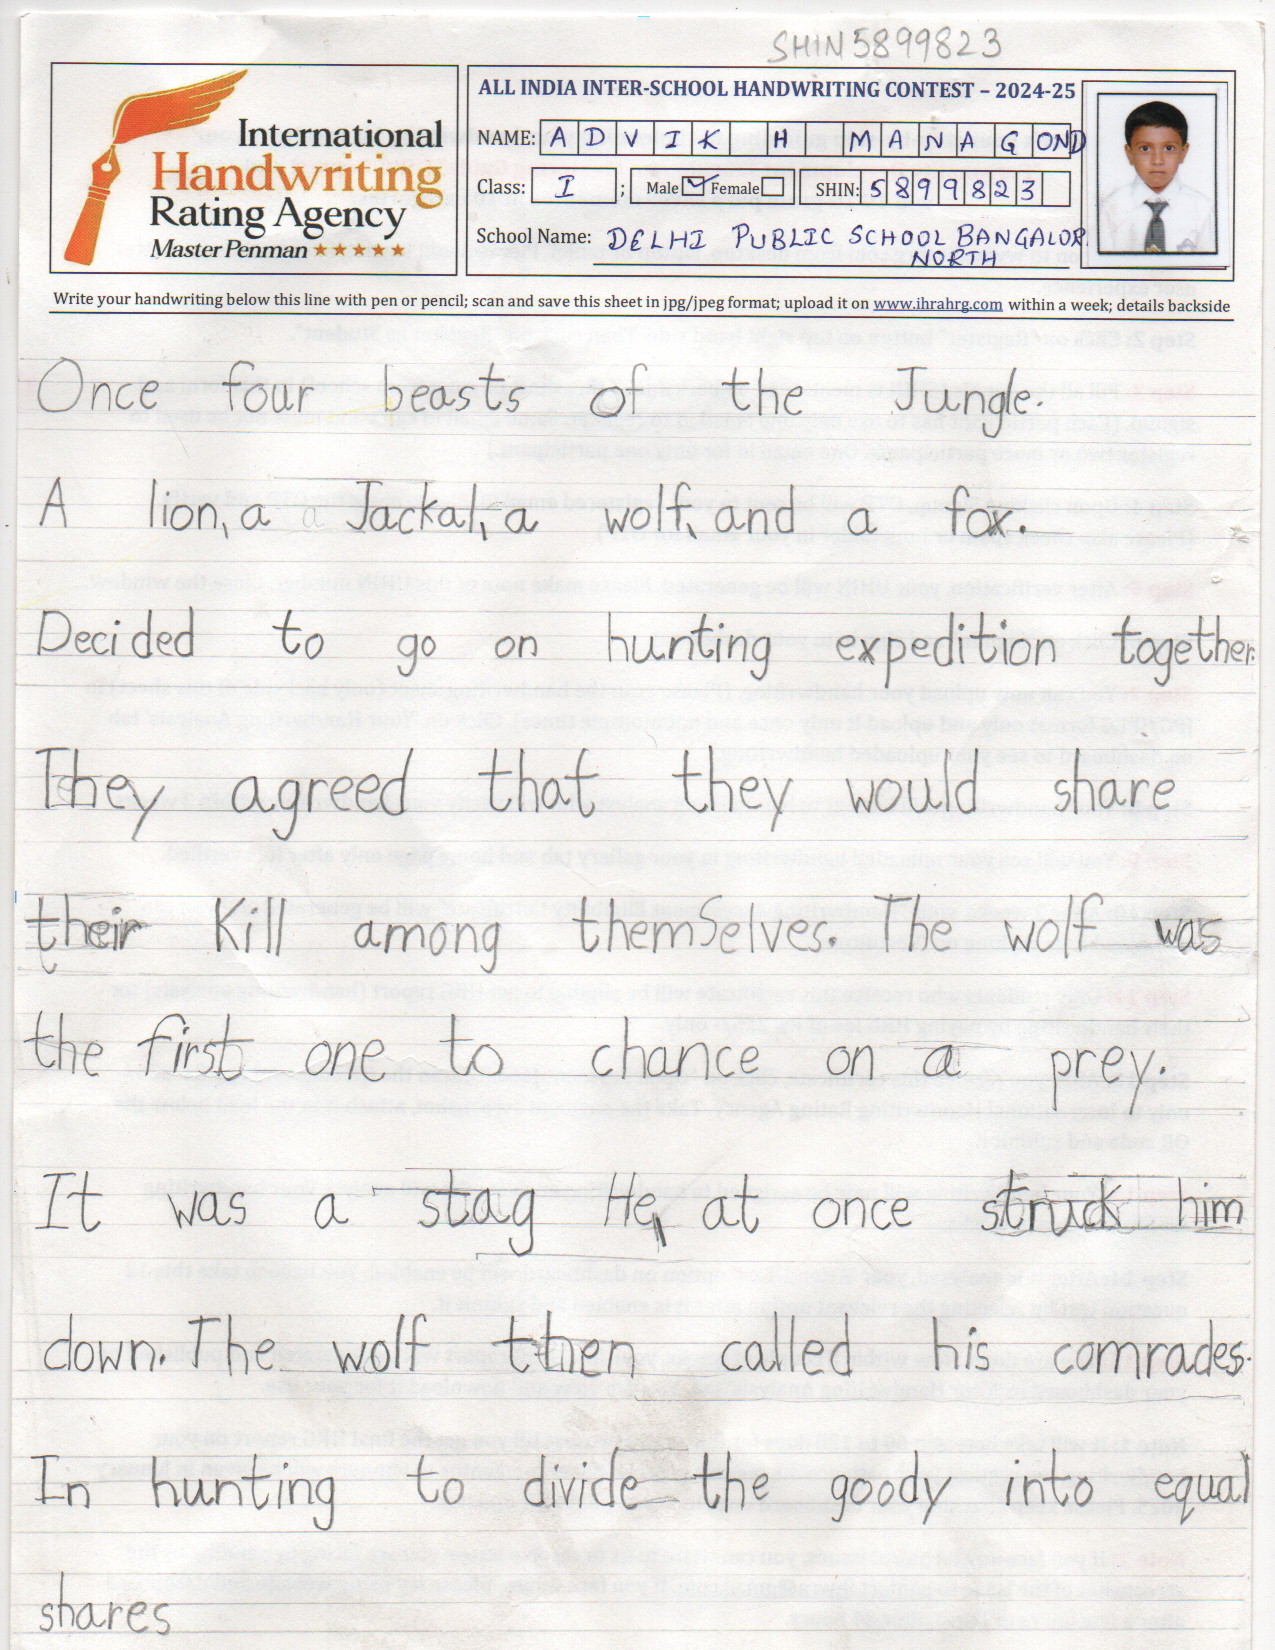 SHIN5899823
International
Handwriting
Rating Agency
Master Penman ★★★★★
ALL INDIA INTER-SCHOOL HANDWRITING CONTEST – 2024-25
NAME: ADVIK H MANAGOND
Class: I ; Male ☑ Female ☐ SHIN: 5899823
School Name: DELHI PUBLIC SCHOOL BANGALOR
NORTH
Write your handwriting below this line with pen or pencil; scan and save this sheet in jpg/jpeg format; upload it on www.ihrahrg.com within a week; details backside
Once four beasts of the Jungle.
A lion, a a Jackal, a wolf, and a fox.
Decided to go on hunting expedition together.
They agreed that they would share
their Kill among themSelves. The wolf was
the first one to chance on a prey.
It was a stag He, at once struck him
down. The wolf then called his comrades.
In hunting to divide the goody into equal
shares